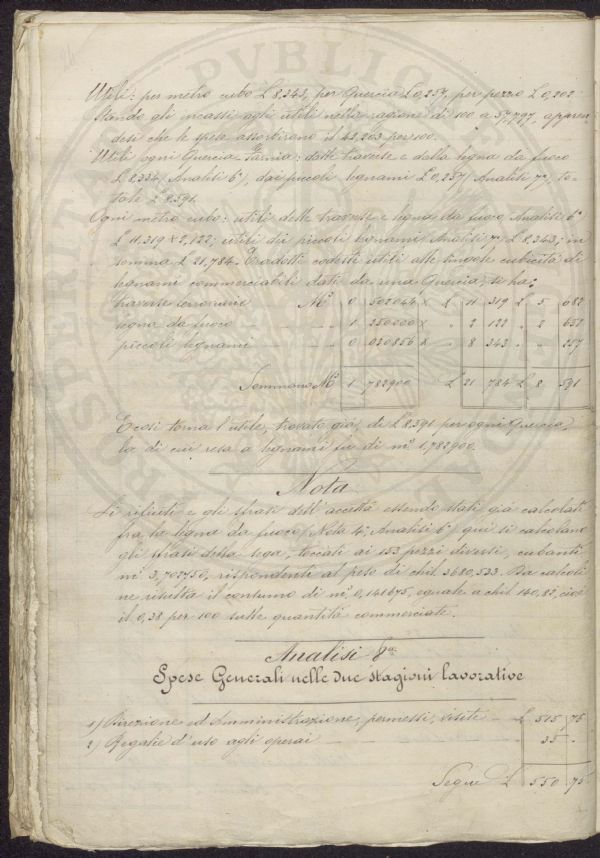 Utili: per metro cubo £ 8,343, per Quercia £ 0,257, per pezzo £ 0,202
Stando gli incassi agli utili nella ragione di 100 a 37,797 appren-
desi che le spese assortirono il 62.203 per 100.
Utili ogni Quercia Farnia: dalle traverse e dalla legna da fuoco
£ 8.334 (Analisi 6ª), dai piccoli legnami £ 0,257 (Analisi 7ª), to-
tale £ 8.591.
Ogni metro cubo: utili delle traverse e legna da fuoco, Analisi 6ª
£ 11.319 + 2,122; utili dei piccoli legnami Analisi 7ª £ 8,343; in
somma £ 21,784. Tradotti codesti utili alle singole cubicità di
legnami commerciabili dati da una Quercia, si ha:
traverse ferroviarie M.ᶜ 0 502044 × £ 11 319 £ 5 682
legna da fuoco 1 250000 × " 2 122 " 2 652
piccoli legnami 0 030856 × " 8 343 " " 257
Sommano M.ᶜ 1 782900 £ 21 784 £ 8 591
E così torna l'utile, trovato già, di £ 8.591 per ogni Querciuo-
la di cui resa a legnami fu di mᶜ 1,782900.
Nota
Li rifiuti e gli sfrasi dell'accetta essendo stati già calcolati
fra la legna da fuoco (Nota 4, Analisi 6ª) qui si calcolano
gli sfrasi della sega, toccati ai 153 pezzi diversi, cubanti
mᶜ 3,702750, rispondenti al peso di chil 3680,533. Da calcoli
ne risulta il consumo di mᶜ 0,141675, eguale a chil 140,83, cioè
il 0,38 per 100 sulle quantità commerciate.
Analisi 8ª
Spese Generali nelle due stagioni lavorative
1) Direzione ed Amministrazione, permessi, visite £ 515 75
2) Regalie d'uso agli operai 35 -
Segue £ 550 75